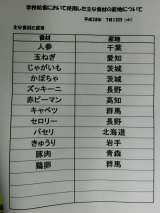 学校給食において使用した主な食材の産地について
主な食材と産地
食材 産地
人参 千葉
玉ねぎ 愛知
じゃがいも 茨城
かぼちゃ 茨城
ズッキーニ 長野
赤ピーマン 高知
キャベツ 群馬
セロリー 長野
パセリ 北海道
きゅうり 岩手
豚肉 青森
鶏卵 群馬